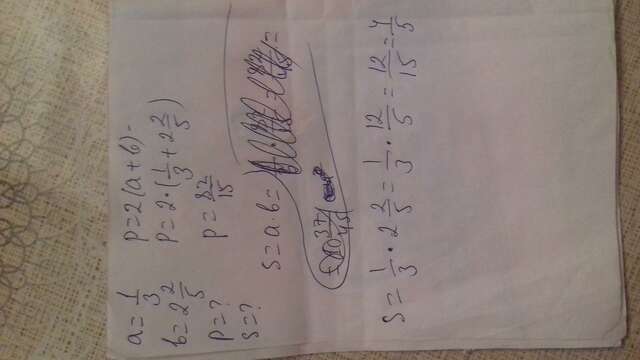 a = 1/3
b = 2 2/5
P = ?
S = ?
P = 2(a + b) =
P = 2 · (1/3 + 2 2/5)
P = 82/15
S = a · b =
S = 1/3 · 2 2/5 = 1/3 · 12/5 = 12/15 = 4/5